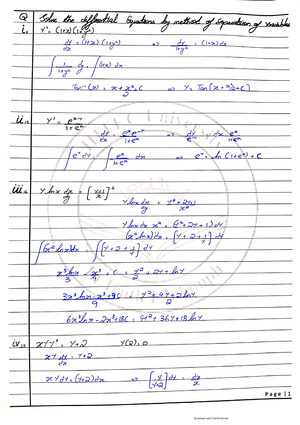 Q Solve the differential Equations by method of Separation of variables
i, Y' = (1+x)(1+y²)
dy/dx = (1+x)(1+y²) => dy/1+y² = (1+x)dx
∫ 1/1+y² dy = ∫(1+x) dx
Tan⁻¹(x) = x + x²/2 + C => Y = Tan[x + x²/2 + C]
ii, Y' = e^x-y/1+e^x
dy/dx = e^x e^-y/1+e^x => dy/e^-y = dx e^x/1+e^x
∫ e^y dy = ∫ e^x/1+e^x dx => e^y = ln(1+e^x)+C
iii, Y ln x dx/dy = [y+1/x]²
Y ln x dx/dy = Y²+2Y+1/x²
Y ln x dx x² = (Y²+2Y+1)dy
(x² ln x)dx = [Y+2+1/Y] dy
∫(x² ln x)dx = ∫[Y+2+1/Y] dY
x³ ln x/3 - x³/9 + C = Y²/2 + 2Y + ln Y
3x³ ln x - x³ + 9C/9 = Y²+4Y+2 ln Y/2
6x³ ln x - 2x³ + 18C = 9Y² + 36Y + 18 ln Y
iv, xY' = Y+2 Y(2)=0
xY dy/dx = Y+2
xY dy = (Y+2)dx => [Y/Y+2] dY = dx/x
Page | 1
Scanned with CamScanner